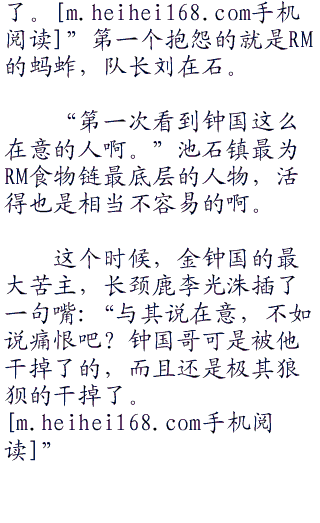 了。[m.heihei168.com手机
阅读]”第一个抱怨的就是RM
的蚂蚱，队长刘在石。
“第一次看到钟国这么
在意的人啊。”池石镇最为
RM食物链最底层的人物，活
得也是相当不容易的啊。
这个时候，金钟国的最
大苦主，长颈鹿李光洙插了
一句嘴：“与其说在意，不如
说痛恨吧？钟国哥可是被他
干掉了的，而且还是极其狼
狈的干掉了。
[m.heihei168.com手机阅
读]”